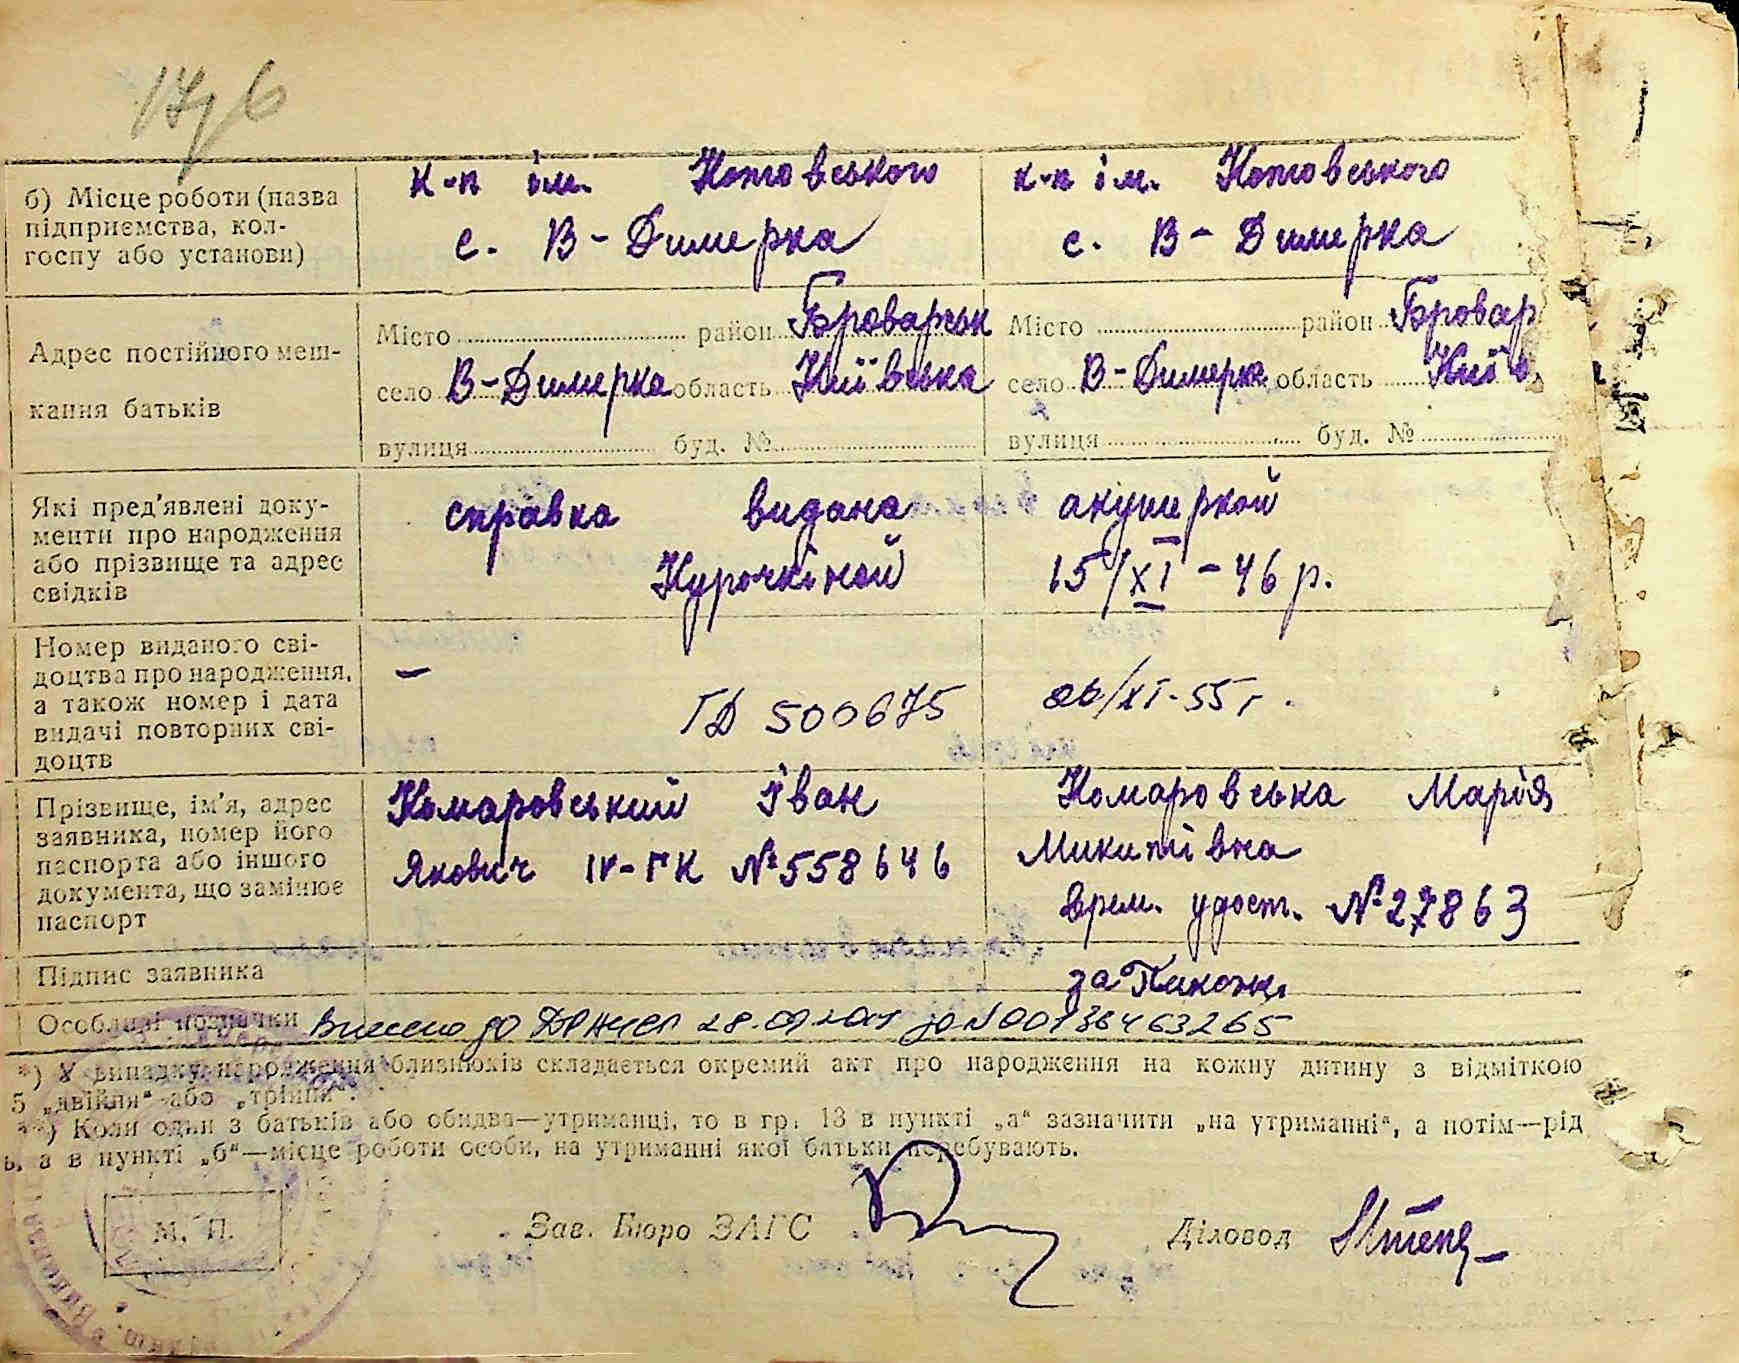 б) Місце роботи (назва підприємства, колгоспу або установи)
к-п ім. Котовського
с. В-Димерка
к-п ім. Котовського
с. В-Димерка
Адрес постійного мешкання батьків
Місто район Броварськ
село В-Димерка область Київська
вулиця буд. №
Місто район Бровар
село В-Димерка область Київ
вулиця буд. №
Які пред'явлені документи про народження або прізвище та адрес свідків
справка видана акушеркой
Курочкіной 15/XI-46 р.
Номер виданого свідоцтва про народження, а також номер і дата видачі повторних свідоцтв
—
ГД 500675 26/XI-55 г.
Прізвище, ім'я, адрес заявника, номер його паспорта або іншого документа, що замінює паспорт
Комаровський Іван
Якович IV-ГК №558646
Комаровська Марія
Микитівна
врем. удост. №27863
Підпис заявника
за
Особливі позначки Внесено до ДРАЦСГ 28.07. за №00136463265
*) У випадку народження близнюків складається окремий акт про народження на кожну дитину з відміткою
„двійня“ або „трійня“.
**) Коли один з батьків або обидва—утриманці, то в гр. 13 в пункті „а“ зазначити „на утриманні“, а потім—рід
а в пункті „б“—місце роботи особи, на утриманні якої батьки перебувають.
М. П.
Зав. Бюро ЗАГС
Діловод